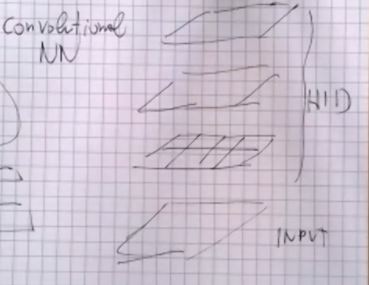 Convolutional
NN
HID
INPUT